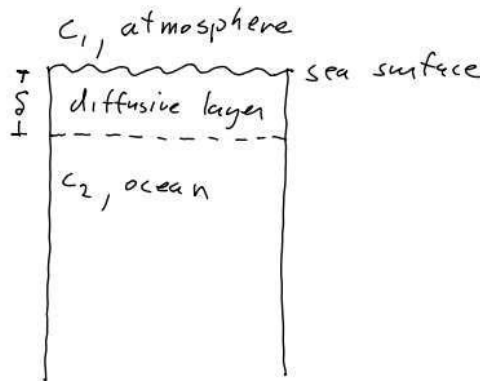 C₁, atmosphere
sea surface
δ
diffusive layer
C₂, ocean